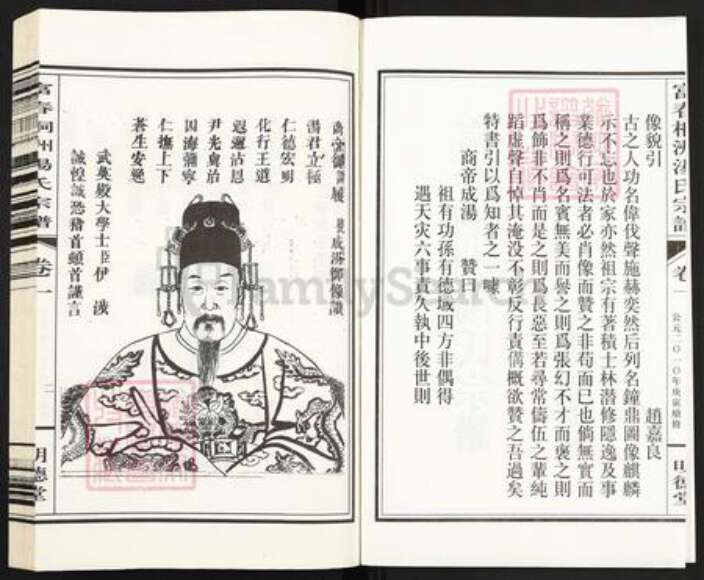 像貌引
趙嘉良
古之人功名偉伐聲施赫奕然后列名鐘鼎圖像麒麟
示不忘也於家亦然祖宗有著積士林潜修隱逸及事
業德行可法者必肖像而贊之非苟而已也倘無實而
稱之則爲名賓無美而譽之則爲張幻不才而褒之則
爲飾非不肖而是之則爲長惡至若尋常儔伍之輩純
蹈虛聲自悼其淹没不彰反行責備概欲贊之吾過矣
特書引以爲知者之一噱
商帝成湯 贊曰
祖有功孫有德域四方非偶得
遇天灾六事責久執中後世則
公元二〇一〇年庚寅續修
卷一
明德堂
湯君立極
仁德宏昭
化行王道
遐邇沾恩
尹光輿治
四海彌寧
仁撫上下
蒼生安樂
武英殿大學士臣伊
誠惶誠恐稽首頓首謹言
湯氏宗譜
卷一
明德堂
FamilySearch